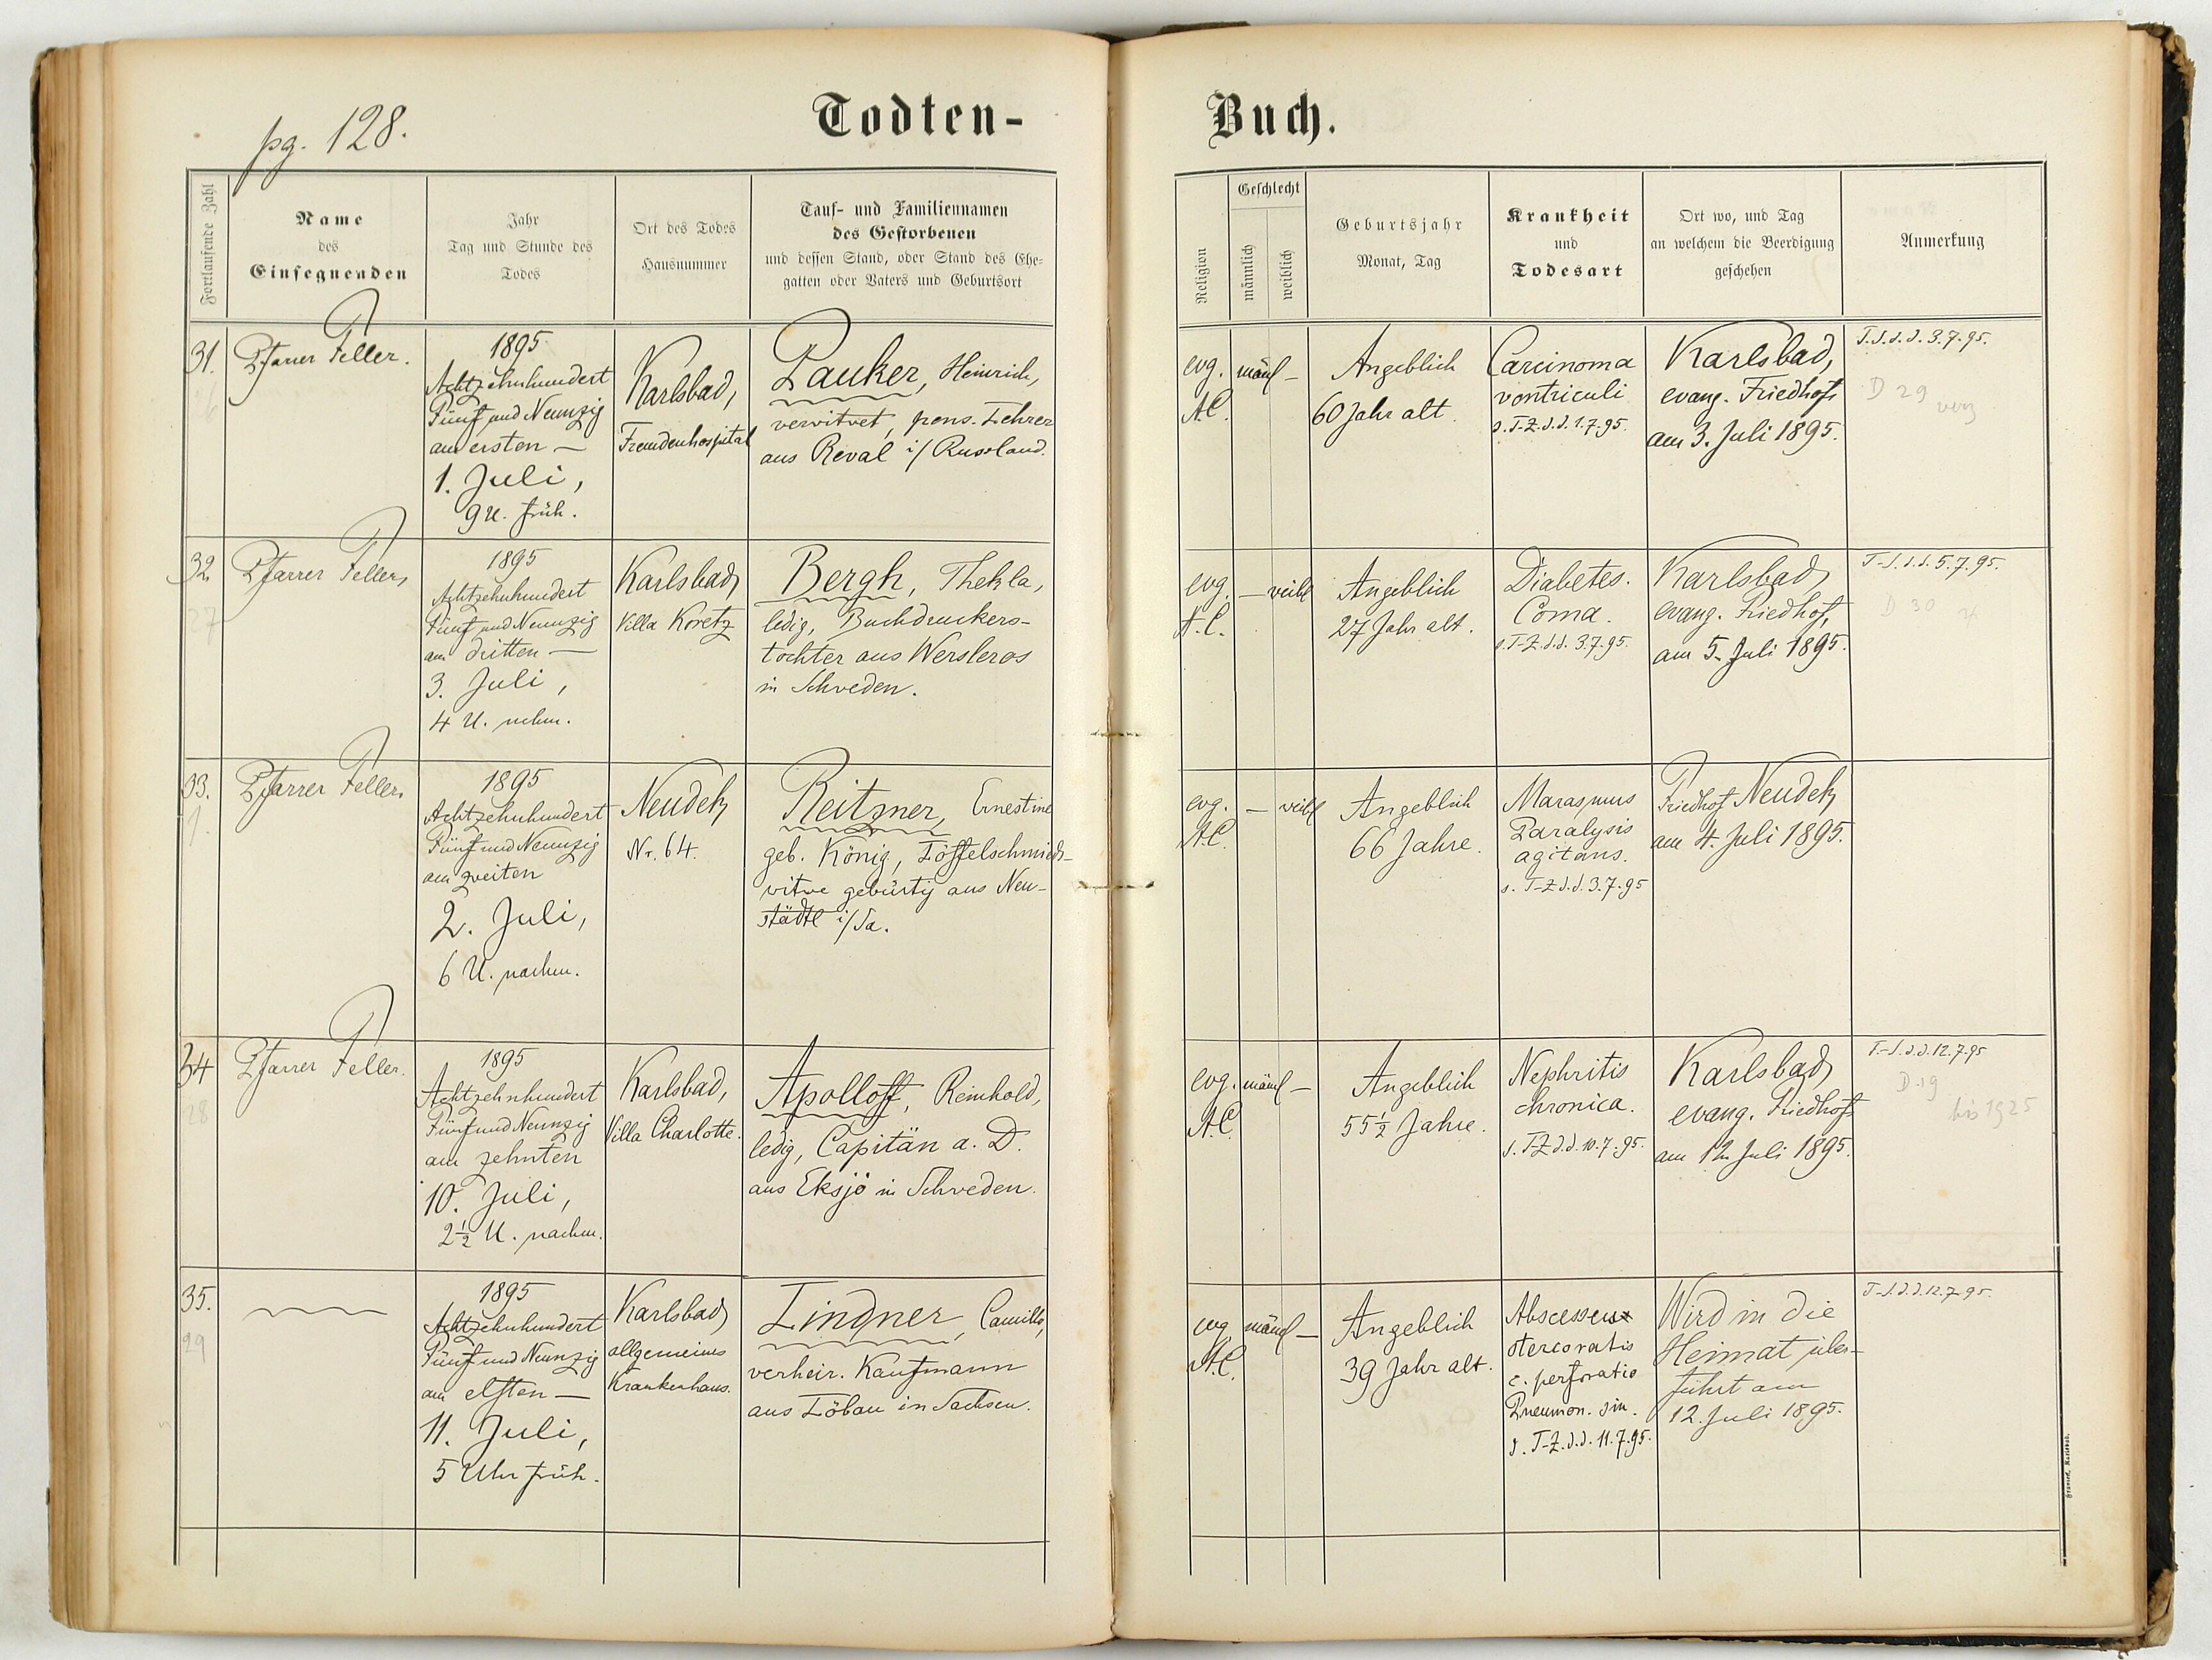 pg. 128.
Todten-
Buch.
Fortlaufende Zahl
Name
des
Einsegnenden
Jahr
Tag und Stunde des
Todes
Ort des Todes
Hausnummer
Tauf- und Familiennamen
des Gestorbenen
und dessen Stand, oder Stand des Ehe-
gatten oder Vaters und Geburtsort
Religion
Geschlecht
männlich
weiblich
Geburtsjahr
Monat, Tag
Krankheit
und
Todesart
Ort wo, und Tag
an welchem die Beerdigung
geschehen
Anmerkung
31.
Pfarrer Feller.
1895
Achtzehnhundert
Fünf und Neunzig
am ersten —
1. Juli,
9 U. früh.
Karlsbad,
Fremdenhospital
Pauker, Heinrich,
verwitwet, pens. Lehrer
aus Reval i/ Russland.
evg.
A.C.
männl —
Angeblich
60 Jahr alt.
Carcinoma
ventriculi
s. T-Z. d.d. 1.7.95.
Karlsbad,
evang. Friedhof,
am 3. Juli 1895.
T.S. d.d. 3.7.95.
D 29
32
27
Pfarrer Feller,
1895
Achtzehnhundert
Fünf und Neunzig
am dritten —
3. Juli,
4 U. nchm.
Karlsbad,
Villa Koretz
Bergh, Thekla,
ledig, Buchdruckers-
tochter aus Wersleros
in Schweden.
evg.
A.C.
— weibl
Angeblich
27 Jahr alt.
Diabetes.
Coma.
s. T-Z. d.d. 3.7.95.
Karlsbad,
evang. Friedhof,
am 5. Juli 1895.
T-S. d.d. 5.7.95.
D 30
33.
Pfarrer Feller.
1895
Achtzehnhundert
Fünf und Neunzig
am zweiten
2. Juli,
6 U. nachm.
Neudek,
Nr. 64.
Reitzner, Ernestine
geb. König, Löffelschmieds-
witwe gebürtig aus Neu-
städtl i/Sa.
evg.
A.C.
— weibl
Angeblich
66 Jahre.
Marasmus
Paralysis
agitans.
s. T-Z d.d. 3.7.95
Friedhof Neudek,
am 4. Juli 1895.
34
28
Pfarrer Feller.
1895
Achtzehnhundert
Fünf und Neunzig
am zehnten
10. Juli,
2½ U. nachm.
Karlsbad,
Villa Charlotte.
Apolloff, Reinhold,
ledig, Capitän a. D.
aus Eksjö in Schweden.
evg.
A.C.
männl —
Angeblich
55½ Jahre.
Nephritis
chronica.
s. T-Z d.d. 10.7.95.
Karlsbad,
evang. Friedhof,
am 12. Juli 1895.
T-S. d.d. 12.7.95
D.19
bis 1925
35.
29
1895
Achtzehnhundert
Fünf und Neunzig
am elften —
11. Juli,
5 Uhr früh.
Karlsbad,
allgemeines
Krankenhaus.
Lindner, Camillo,
verheir. Kaufmann
aus Löbau in Sachsen.
evg.
A.C.
männl —
Angeblich
39 Jahr alt.
stercoralis
c. perforatio
Pneumon. sin.
s. T-Z. d.d. 11.7.95.
Wird in die
Heimat über-
führt am
12. Juli 1895.
T-S. d.d. 12.7.95.